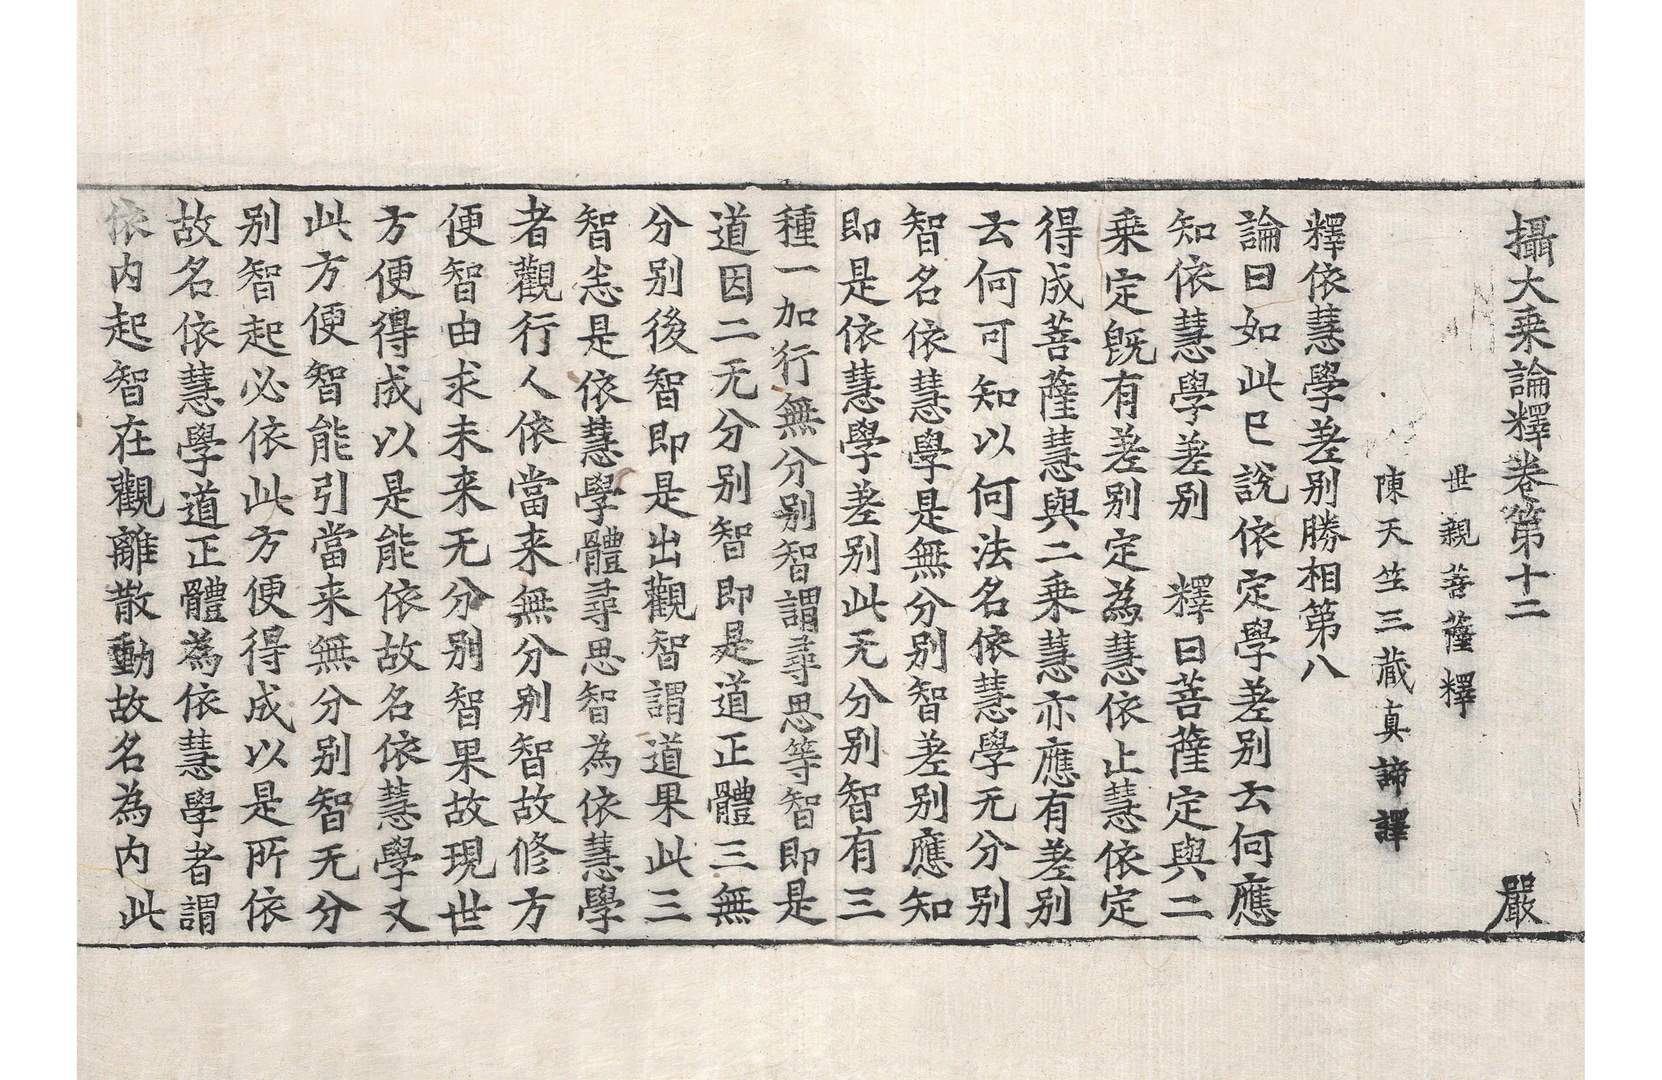 攝大乘論釋卷第十二 嚴
世親菩薩釋
陳天竺三藏真諦譯
釋依慧學差別勝相第八
論曰如此已說依定學差別云何應
知依慧學差別 釋曰菩薩定與二
乘定旣有差別定為慧依止慧依定
得成菩薩慧與二乘慧亦應有差別
云何可知以何法名依慧學无分別
智名依慧學是無分別智差別應知
即是依慧學差別此无分別智有三
種一加行無分別智謂尋思等智即是
道因二无分別智即是道正體三無
分別後智即是出觀智謂道果此三
智悉是依慧學體尋思智為依慧學
者觀行人依當来無分別智故修方
便智由求未来无分別智果故現世
方便得成以是能依故名依慧學又
此方便智能引當来無分別智无分
別智起必依此方便得成以是所依
故名依慧學道正體為依慧學者謂
依内起智在觀離散動故名為内此